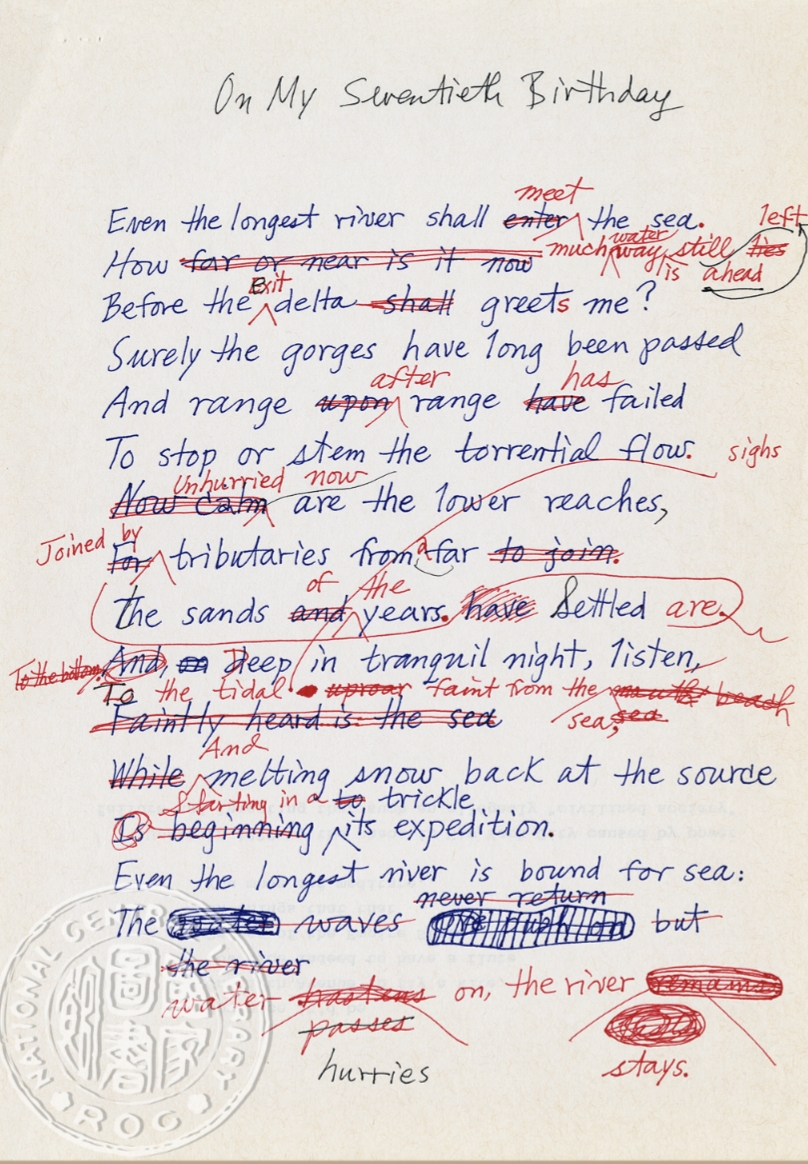 On My Seventieth Birthday
meet
Even the longest river shall enter the sea.
left
water
How far or near is it now much way still lies
is ahead
Exit
Before the delta shall greets me?
Surely the gorges have long been passed
after has
And range upon range have failed
To stop or stem the torrential flow. sighs
Unhurried now
Now calm are the lower reaches,
Joined by
For tributaries from afar to join.
of the
The sands and years. have Settled are.
To the bottom. And, on Deep in tranquil night, listen,
To the tidal uproar faint from the mouth beach
Faintly heard is the sea sea, sea
And
While melting snow back at the source
Starting in a to trickle
Is beginning its expedition.
Even the longest river is bound for sea:
never return
The water waves but
the river
water hastens on, the river remains
passes
hurries stays.
NATIONAL CENTRAL LIBRARY
ROC